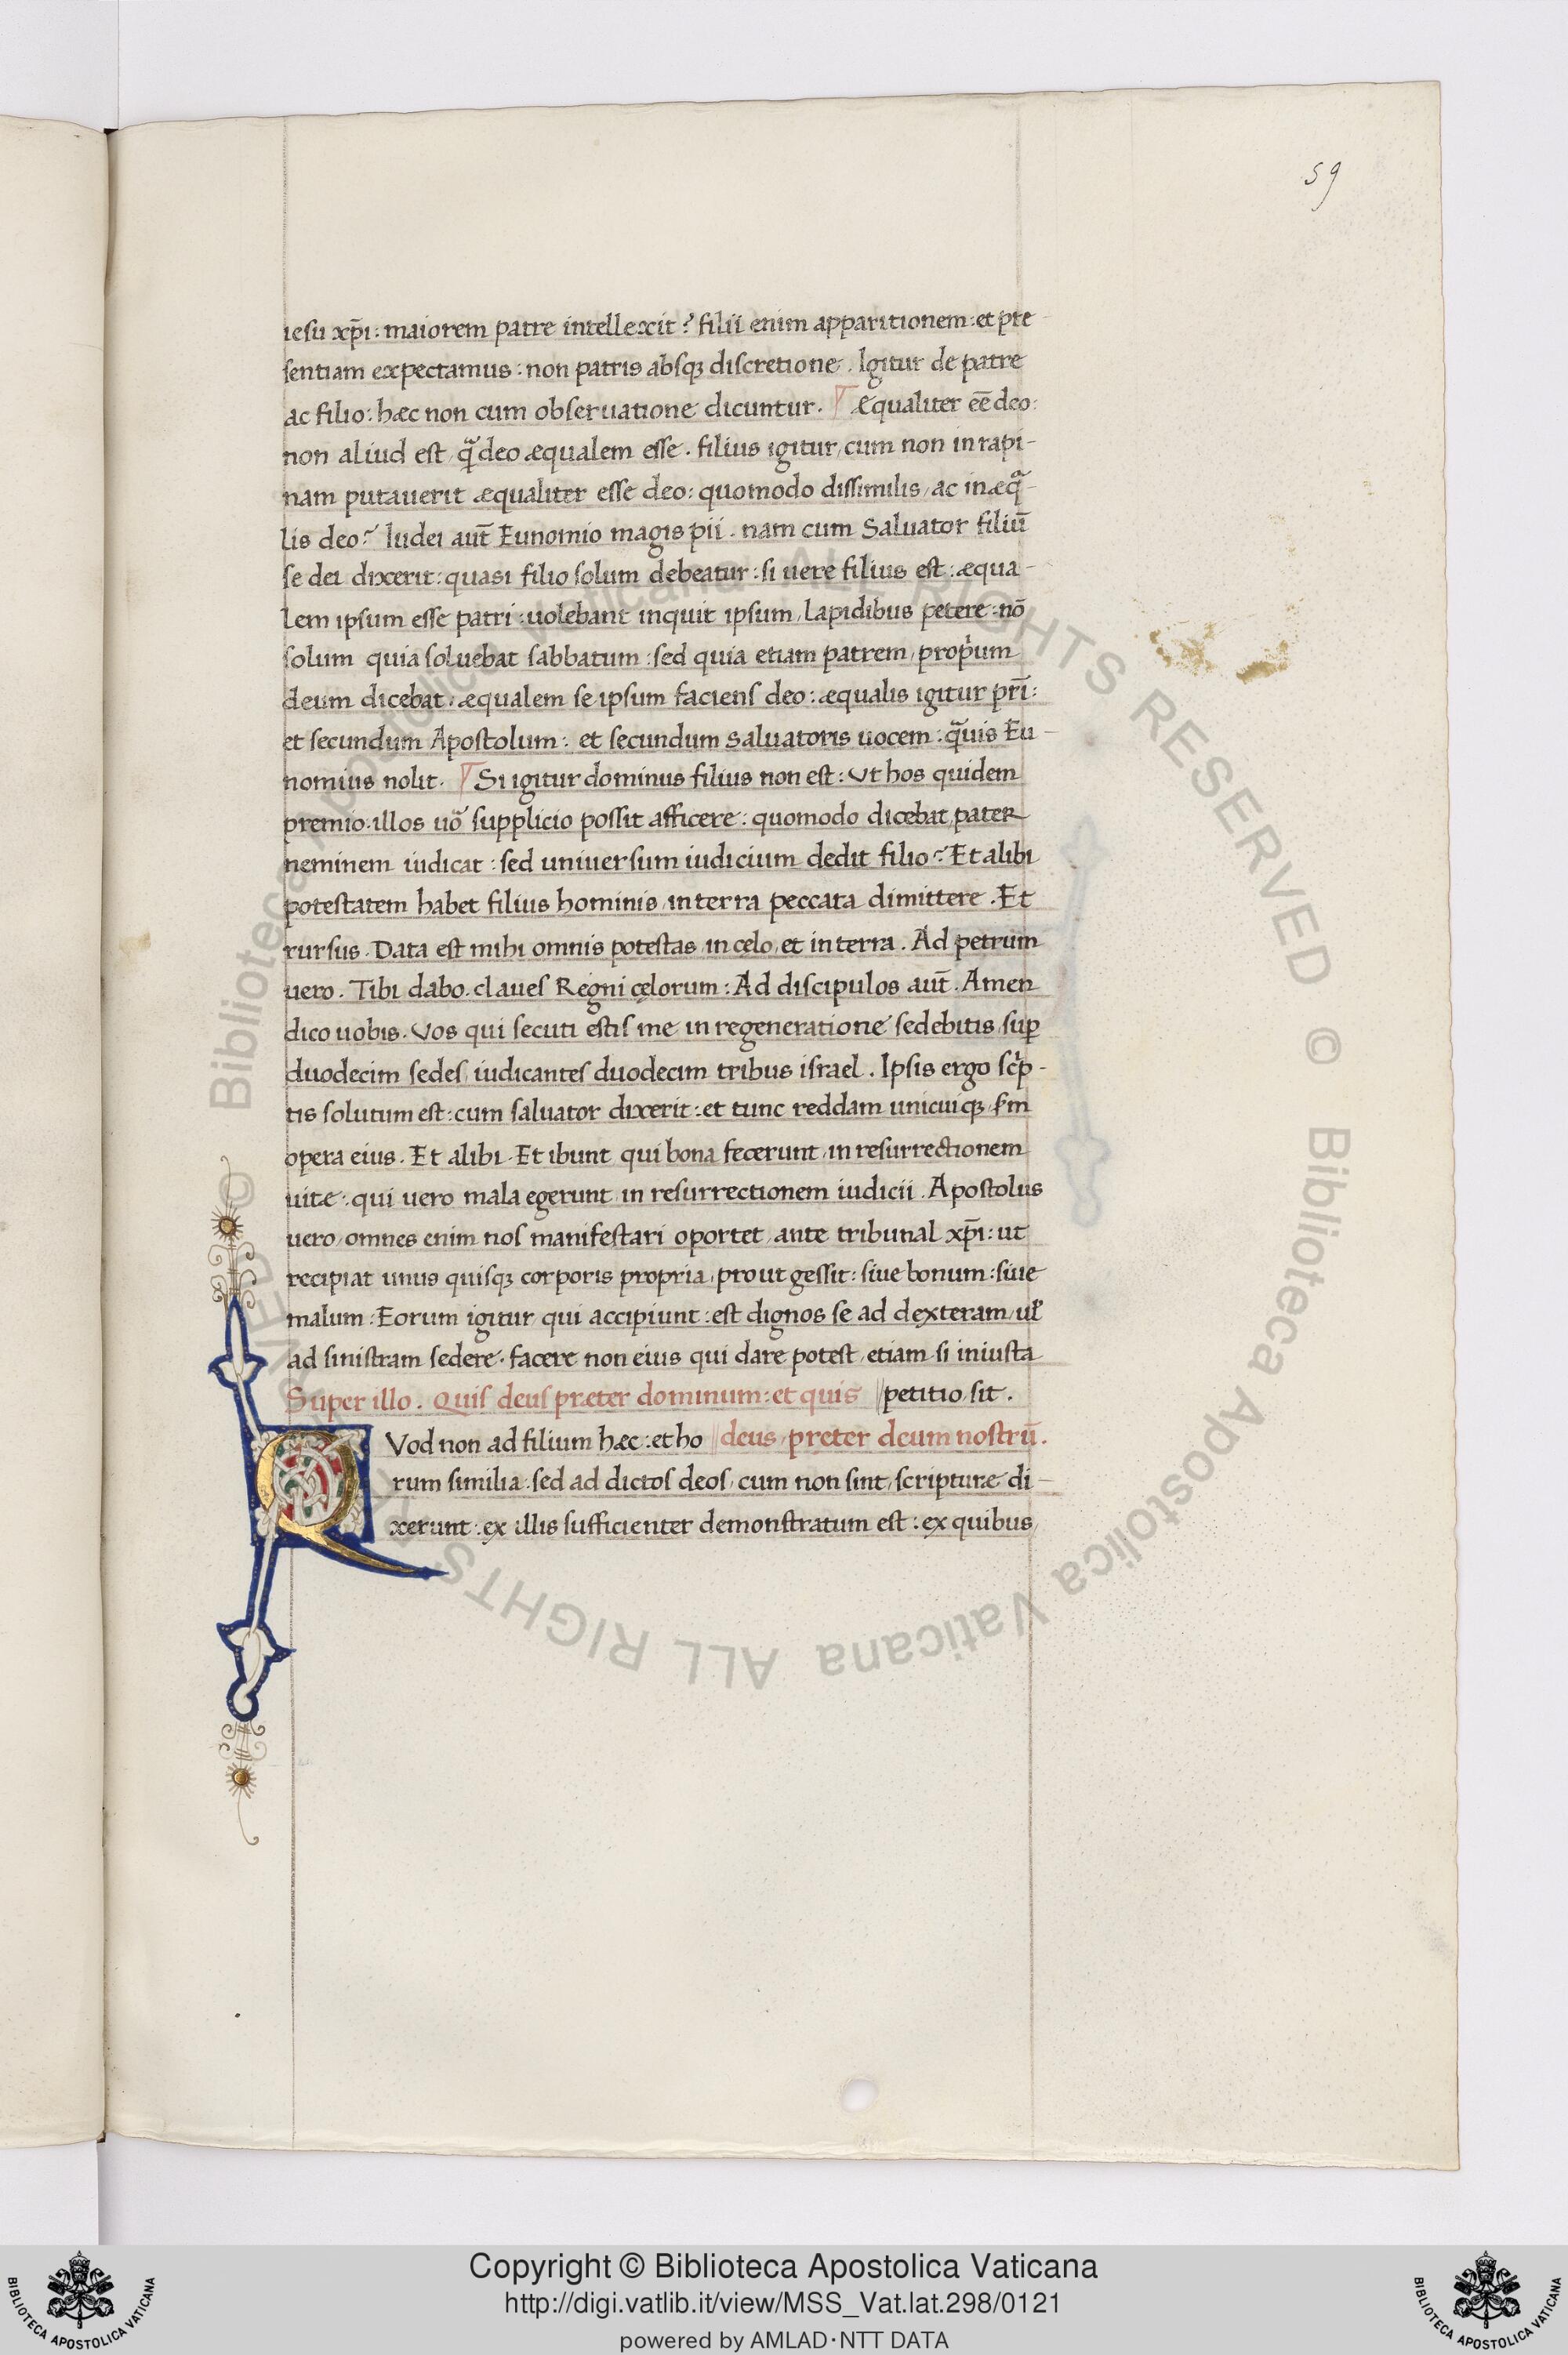 59
iesu xp̄i: maiorem patre intellexit? filii enim apparitionem: et pre
sentiam expectamus: non patris absqꝫ discretione. Igitur de patre
ac filio: hæc non cum obseruatione dicuntur. Æqualiter eē deo:
non aliud est, qᷓ deo æqualem esse. filius igitur, cum non in rapi-
nam putauerit æqualiter esse deo: quomodo dissimilis, ac inæqᷓ-
lis deo? Iudei aut̄ Eunomio magis pii. nam cum Saluator filiū
se dei dixerit: quasi filio solum debeatur: si uere filius est: æqua-
lem ipsum esse patri: uolebant inquit ipsum, lapidibus petere: nō
solum quia soluebat sabbatum: sed quia etiam patrem, propͥum
deum dicebat, æqualem se ipsum faciens deo: æqualis igitur pr̄i:
et secundum Apostolum: et secundum saluatoris uocem: qᷓuis Eu-
nomius nolit. Si igitur dominus filius non est: Vt hos quidem
premio. illos uō supplicio possit afficere: quomodo dicebat, pater
neminem iudicat: sed uniuersum iudicium dedit filio? Et alibi
potestatem habet filius hominis, in terra peccata dimittere. Et
rursus. Data est mihi omnis potestas, in cęlo, et in terra. Ad petrum
uero. Tibi dabo. claues Regni cęlorum: Ad discipulos aut̄. Amen
dico uobis. Vos qui secuti estis me, in regeneratione sedebitis, suꝑ
duodecim sedes, iudicantes duodecim tribus israel. Ipsis ergo scͥp-
tis solutum est: cum saluator dixerit: et tunc reddam unicuiqꝫ, s̄m
opera eius. Et alibi. Et ibunt qui bona fecerunt, in resurrectionem
uitæ: qui uero mala egerunt, in resurrectionem iudicii. Apostolus
uero, omnes enim nos manifestari oportet, ante tribunal xp̄i: ut
recipiat unus quisqꝫ corporis propria, prout gessit: siue bonum: siue
malum: Eorum igitur qui accipiunt: est dignos se ad dexteram, ul̄
ad sinistram sedere. facere non eius qui dare potest, etiam si iniusta
Super illo. Quis deus præter dominum: et quis petitio, sit.
QVod non ad filium hæc: et ho deus, preter deum nostrū.
rum similia. sed ad dictos deos, cum non sint, scripturæ di-
xerunt: ex illis sufficienter demonstratum est: ex quibus,
© Biblioteca Apostolica Vaticana ALL RIGHTS RESERVED © Biblioteca Apostolica Vaticana ALL RIGHTS RESERVED
Copyright © Biblioteca Apostolica Vaticana
http://digi.vatlib.it/view/MSS_Vat.lat.298/0121
powered by AMLAD·NTT DATA
BIBLIOTECA APOSTOLICA VATICANA
BIBLIOTECA APOSTOLICA VATICANA